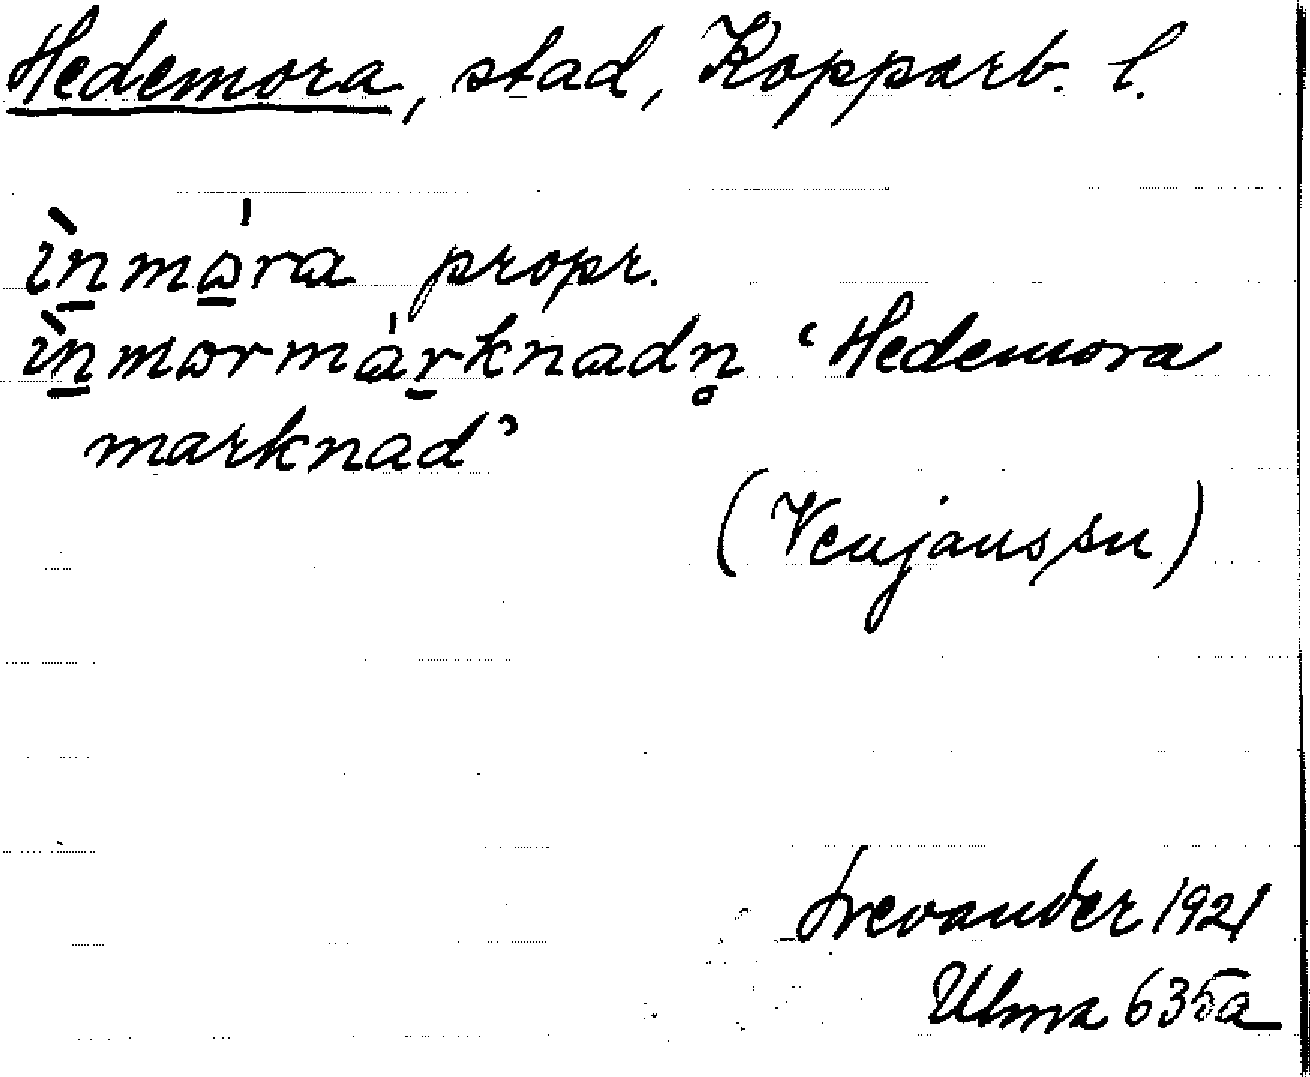 Hedemora, stad, Kopparb. l.
ìn̲mə̲́ra propr.
ìn̲mərmár̲knadn̥ ‘Hedemora
marknad’
(Venjanssn)
Trevander 1921
Ulma 635a